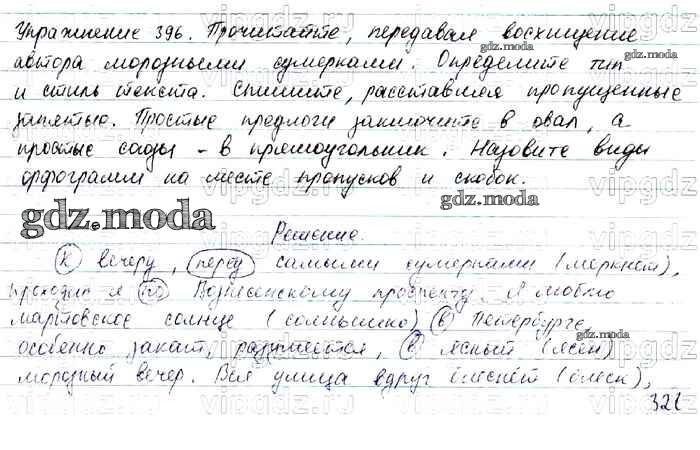 Упражнение 396. Прочитайте, передавая восхищение
автора морозными сумерками. Определите тип
и стиль текста. Спишите, расставляя пропущенные
запятые. Простые предлоги заключите в овал, а
простые союзы - в прямоугольник. Назовите виды
орфограмм на месте пропусков и скобок.
gdz.moda
Решение.
К вечеру, перед самыми сумерками (меркнет),
проходил я по Вознесенскому проспекту. Я люблю
мартовское солнце (солнышко) в Петербурге,
особенно закат, разумеется, в ясный (ясен)
морозный вечер. Вся улица вдруг блеснёт (блеск),
321